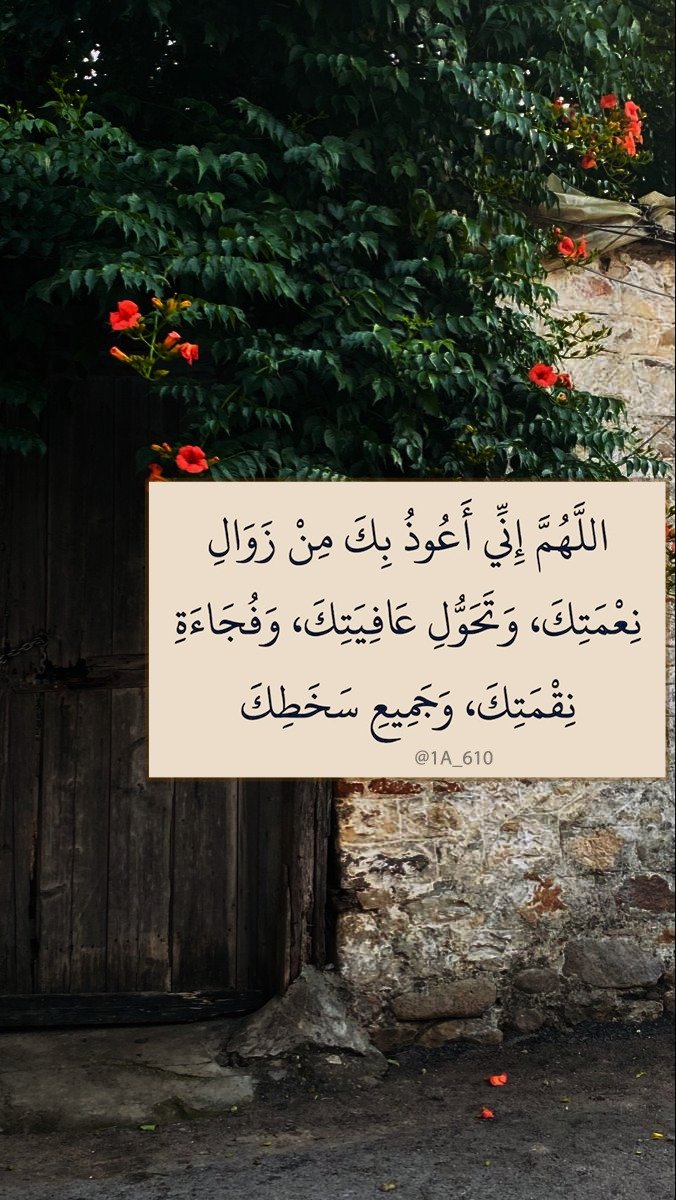 اللَّهُمَّ إِنِّي أَعُوذُ بِكَ مِنْ زَوَالِ
نِعْمَتِكَ، وَتَحَوُّلِ عَافِيَتِكَ، وَفُجَاءَةِ
نِقْمَتِكَ، وَجَمِيعِ سَخَطِكَ
@1A_610